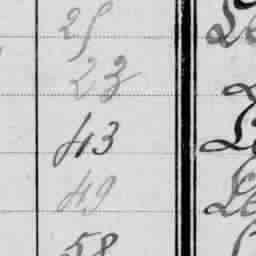 25
23
43
49
58